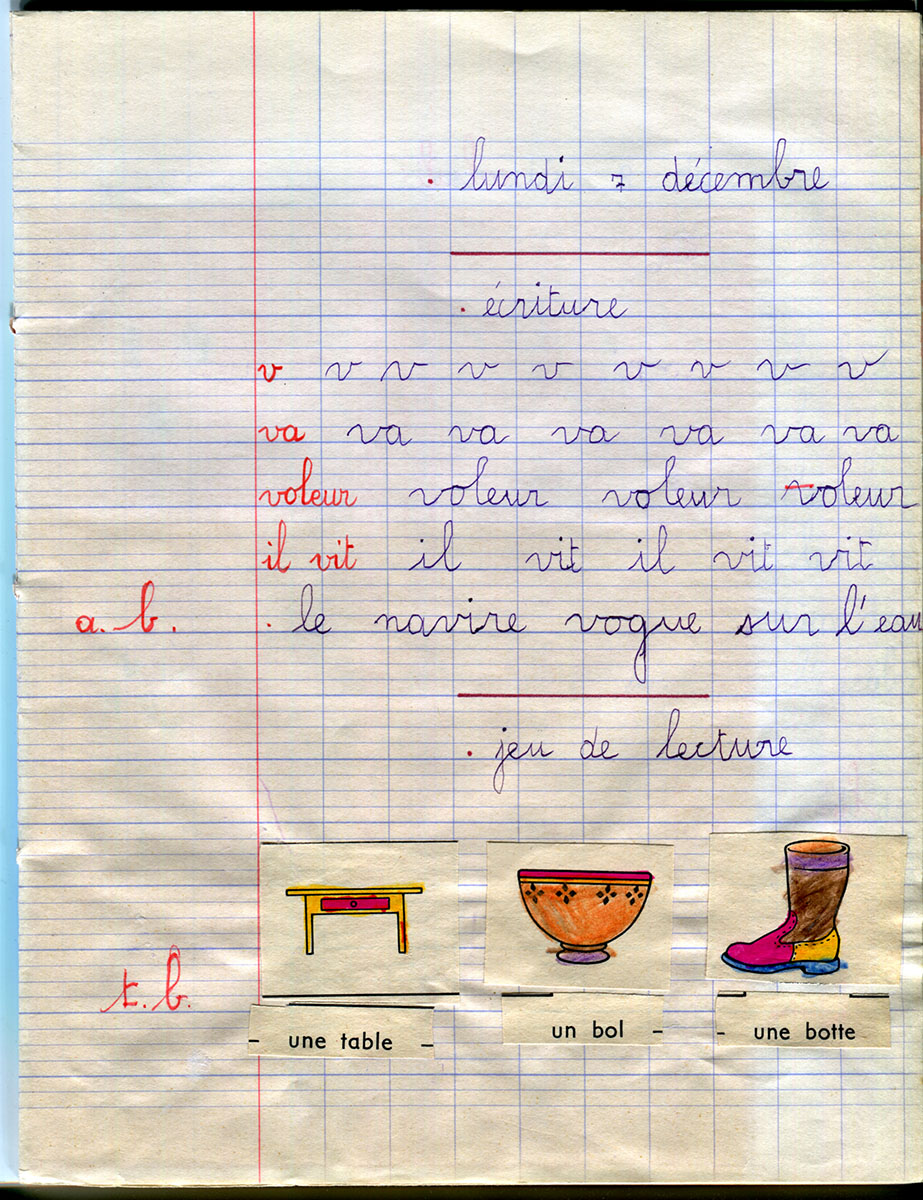 . lundi 7 décembre
. écriture
v v v v v v v v v
va va va va va va va
voleur voleur voleur voleur
il vit il vit il vit vit
a.b. . le navire vogue sur l'eau
. jeu de lecture
t.b.
- une table - un bol - - une botte